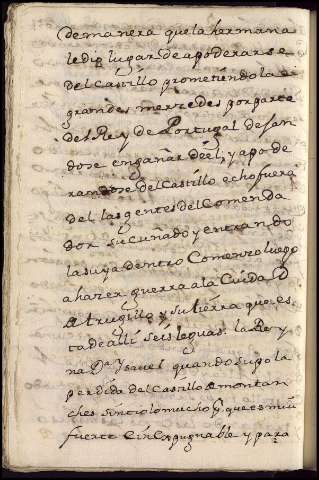 demanera que la hermana
le dio lugar de apoderarse
del Castillo prometiendola
grandes merzedes por parte
del Rey de Portugal dejan
dose engañar de el, y apode
randose del Castillo echo fuera
del las gentes del Comenda
dor su cuñado y entrando
la suya dentro Comenzo luego
a hazer guerra a la Ciudad
de trugillo y su tierra que es
ta de alli seis leguas. la Rey
na Da. Ysavel quando supo la
perdida del Castillo de montan
ches sintiolo mucho q. que es mui
fuerte è inexpugnable y para